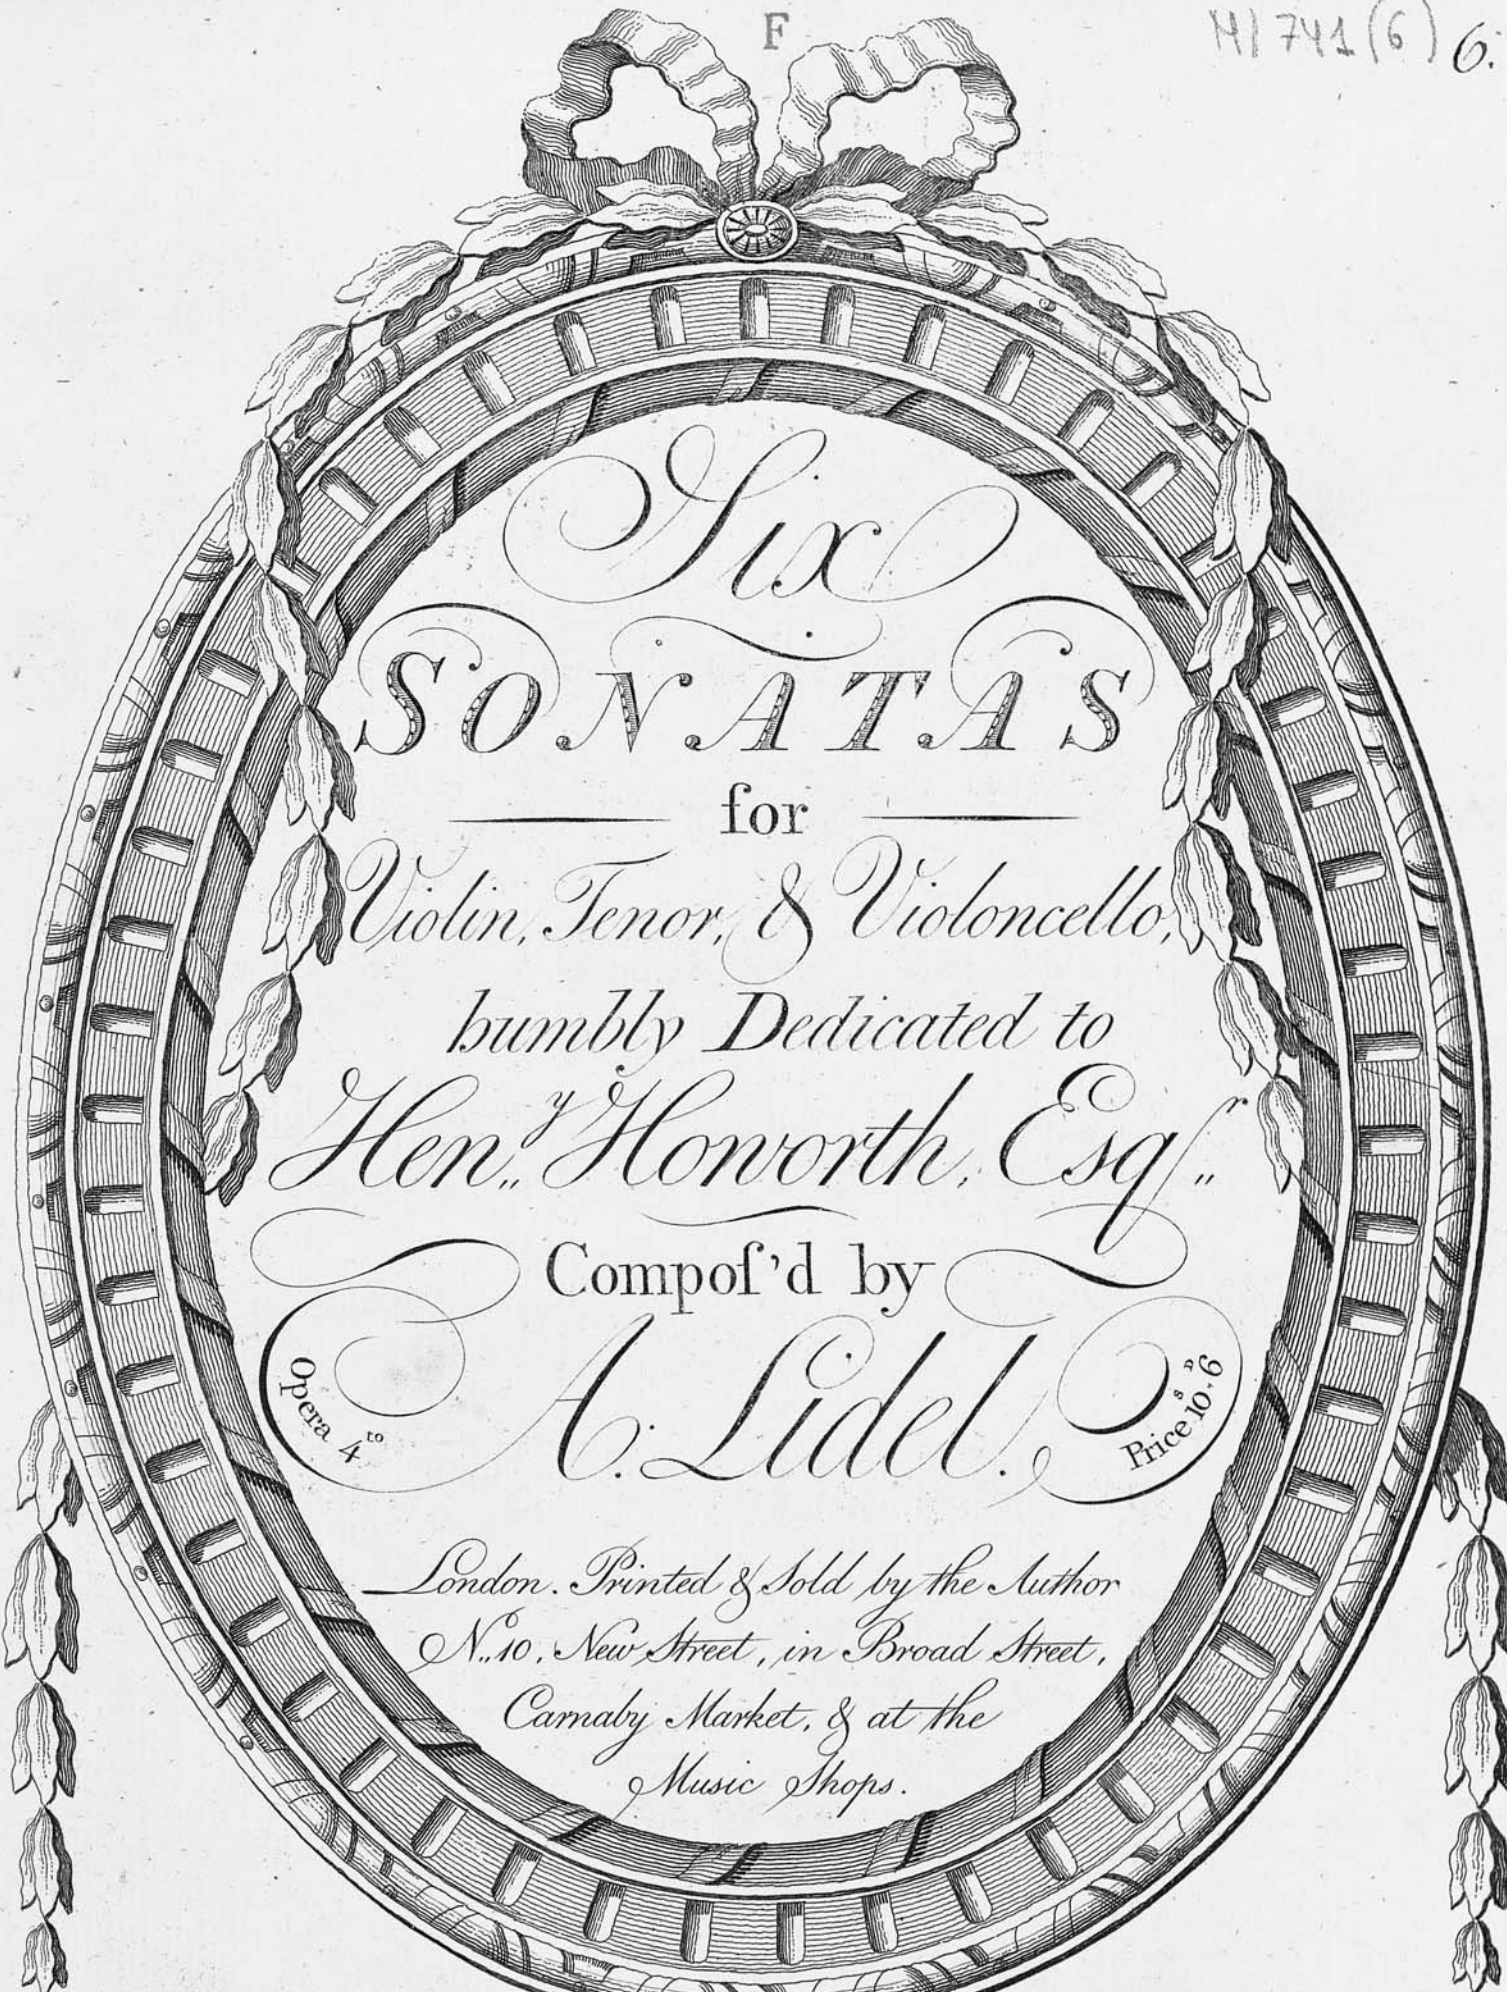 F
MI 741 (6) 6.
Six
SONATAS
for
Violin, Tenor, & Violoncello,
humbly Dedicated to
Hen.y Howorth, Esqr.
Compos'd by
A. Lidel.
Opera 4to
Price 10s.6D
London. Printed & Sold by the Author
No. 10, New Street, in Broad Street,
Carnaby Market, & at the
Music Shops.